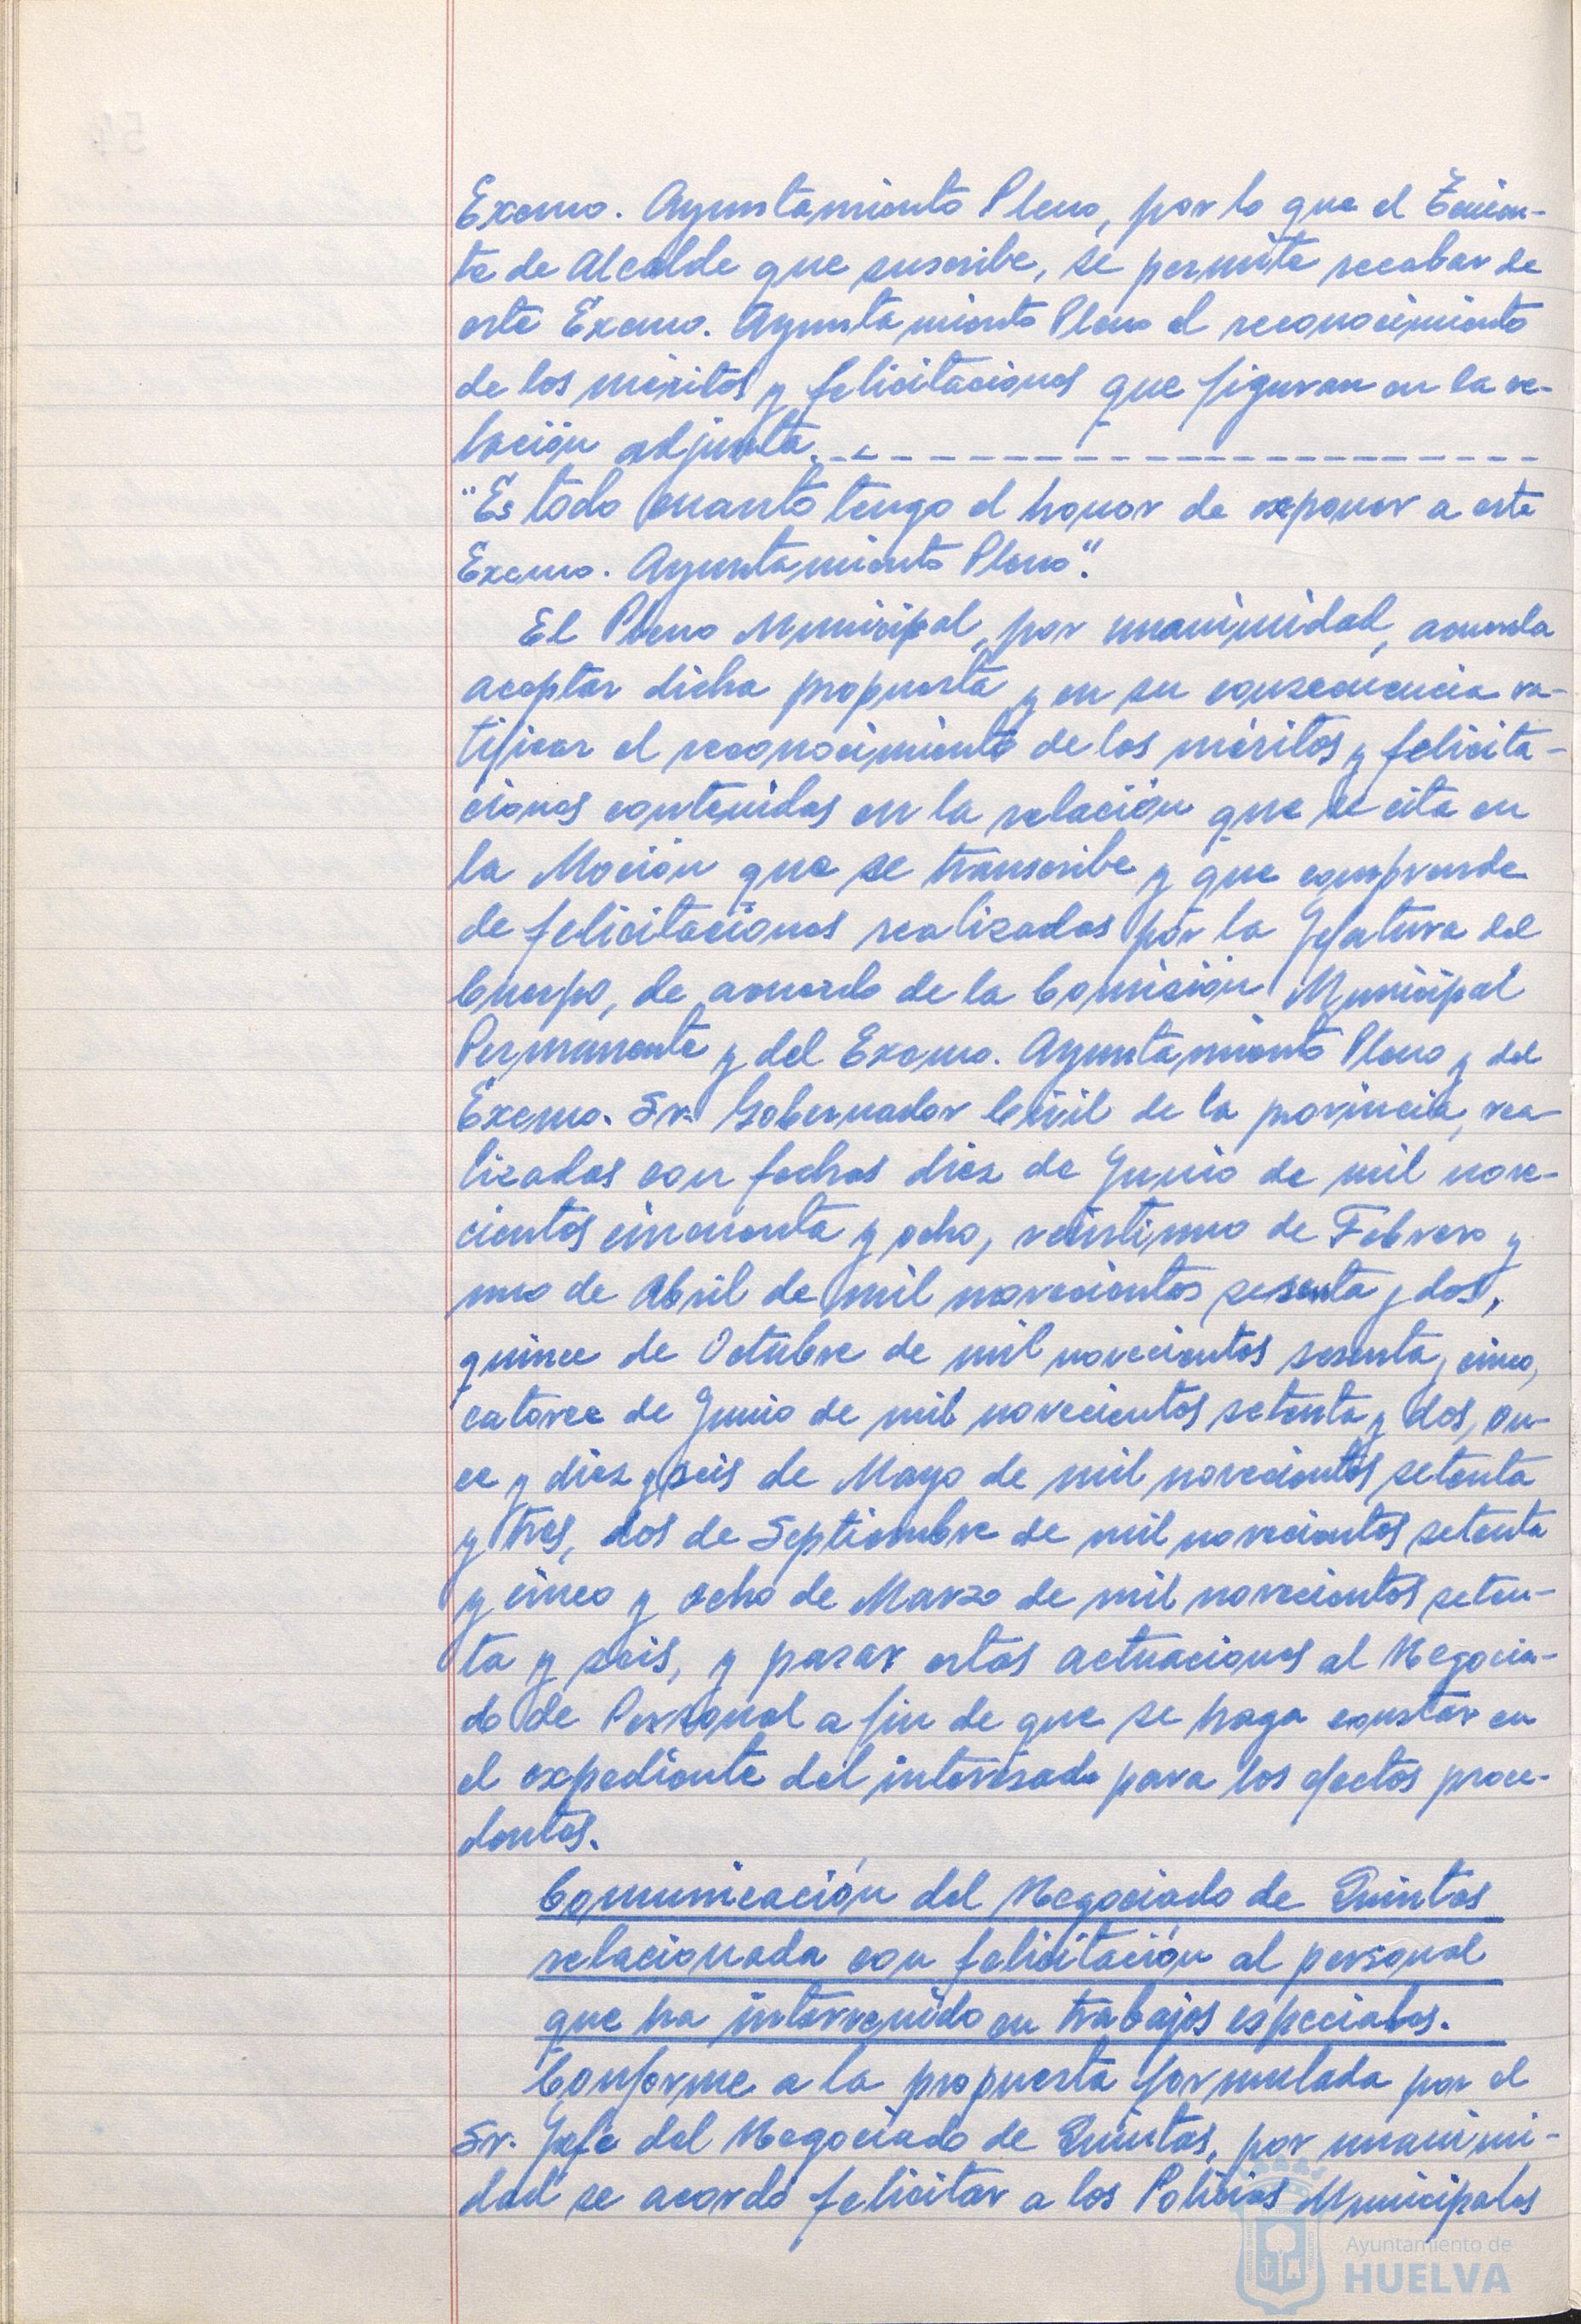 Excmo. Ayuntamiento Pleno, por lo que el Tenien-
te de Alcalde que suscribe, se permite recabar de
este Excmo. Ayuntamiento Pleno el reconocimiento
de los méritos y felicitaciones que figuran en la re-
lación adjunta.
"Es todo cuanto tengo el honor de exponer a este
Excmo. Ayuntamiento Pleno".
El Pleno Municipal, por unanimidad, acuerda
aceptar dicha propuesta y en su consecuencia ra-
tificar el reconocimiento de los méritos y felicita-
ciones contenidas en la relación que se cita en
la Moción que se transcribe y que comprende
de felicitaciones realizadas por la Jefatura del
Cuerpo, de acuerdo de la Comisión Municipal
Permanente y del Excmo. Ayuntamiento Pleno y del
Excmo. Sr. Gobernador Civil de la provincia, rea-
lizadas con fechas diez de Junio de mil nove-
cientos cincuenta y ocho, veintiuno de Febrero y
uno de Abril de mil novecientos sesenta y dos,
quince de Octubre de mil novecientos sesenta y cinco,
catorce de Junio de mil novecientos setenta y dos, on-
ce y diez y seis de Mayo de mil novecientos setenta
y tres, dos de Septiembre de mil novecientos setenta
y cinco y ocho de Marzo de mil novecientos seten-
ta y seis, y pasar estas actuaciones al Negocia-
do de Personal a fin de que se haga constar en
el expediente del interesado para los efectos proce-
dentes.
Comunicación del Negociado de Quintas
relacionada con felicitación al personal
que ha intervenido en trabajos especiales.
Conforme a la propuesta formulada por el
Sr. Jefe del Negociado de Quintas, por unanimi-
dad se acordó felicitar a los Policías Municipales
Ayuntamiento de
HUELVA